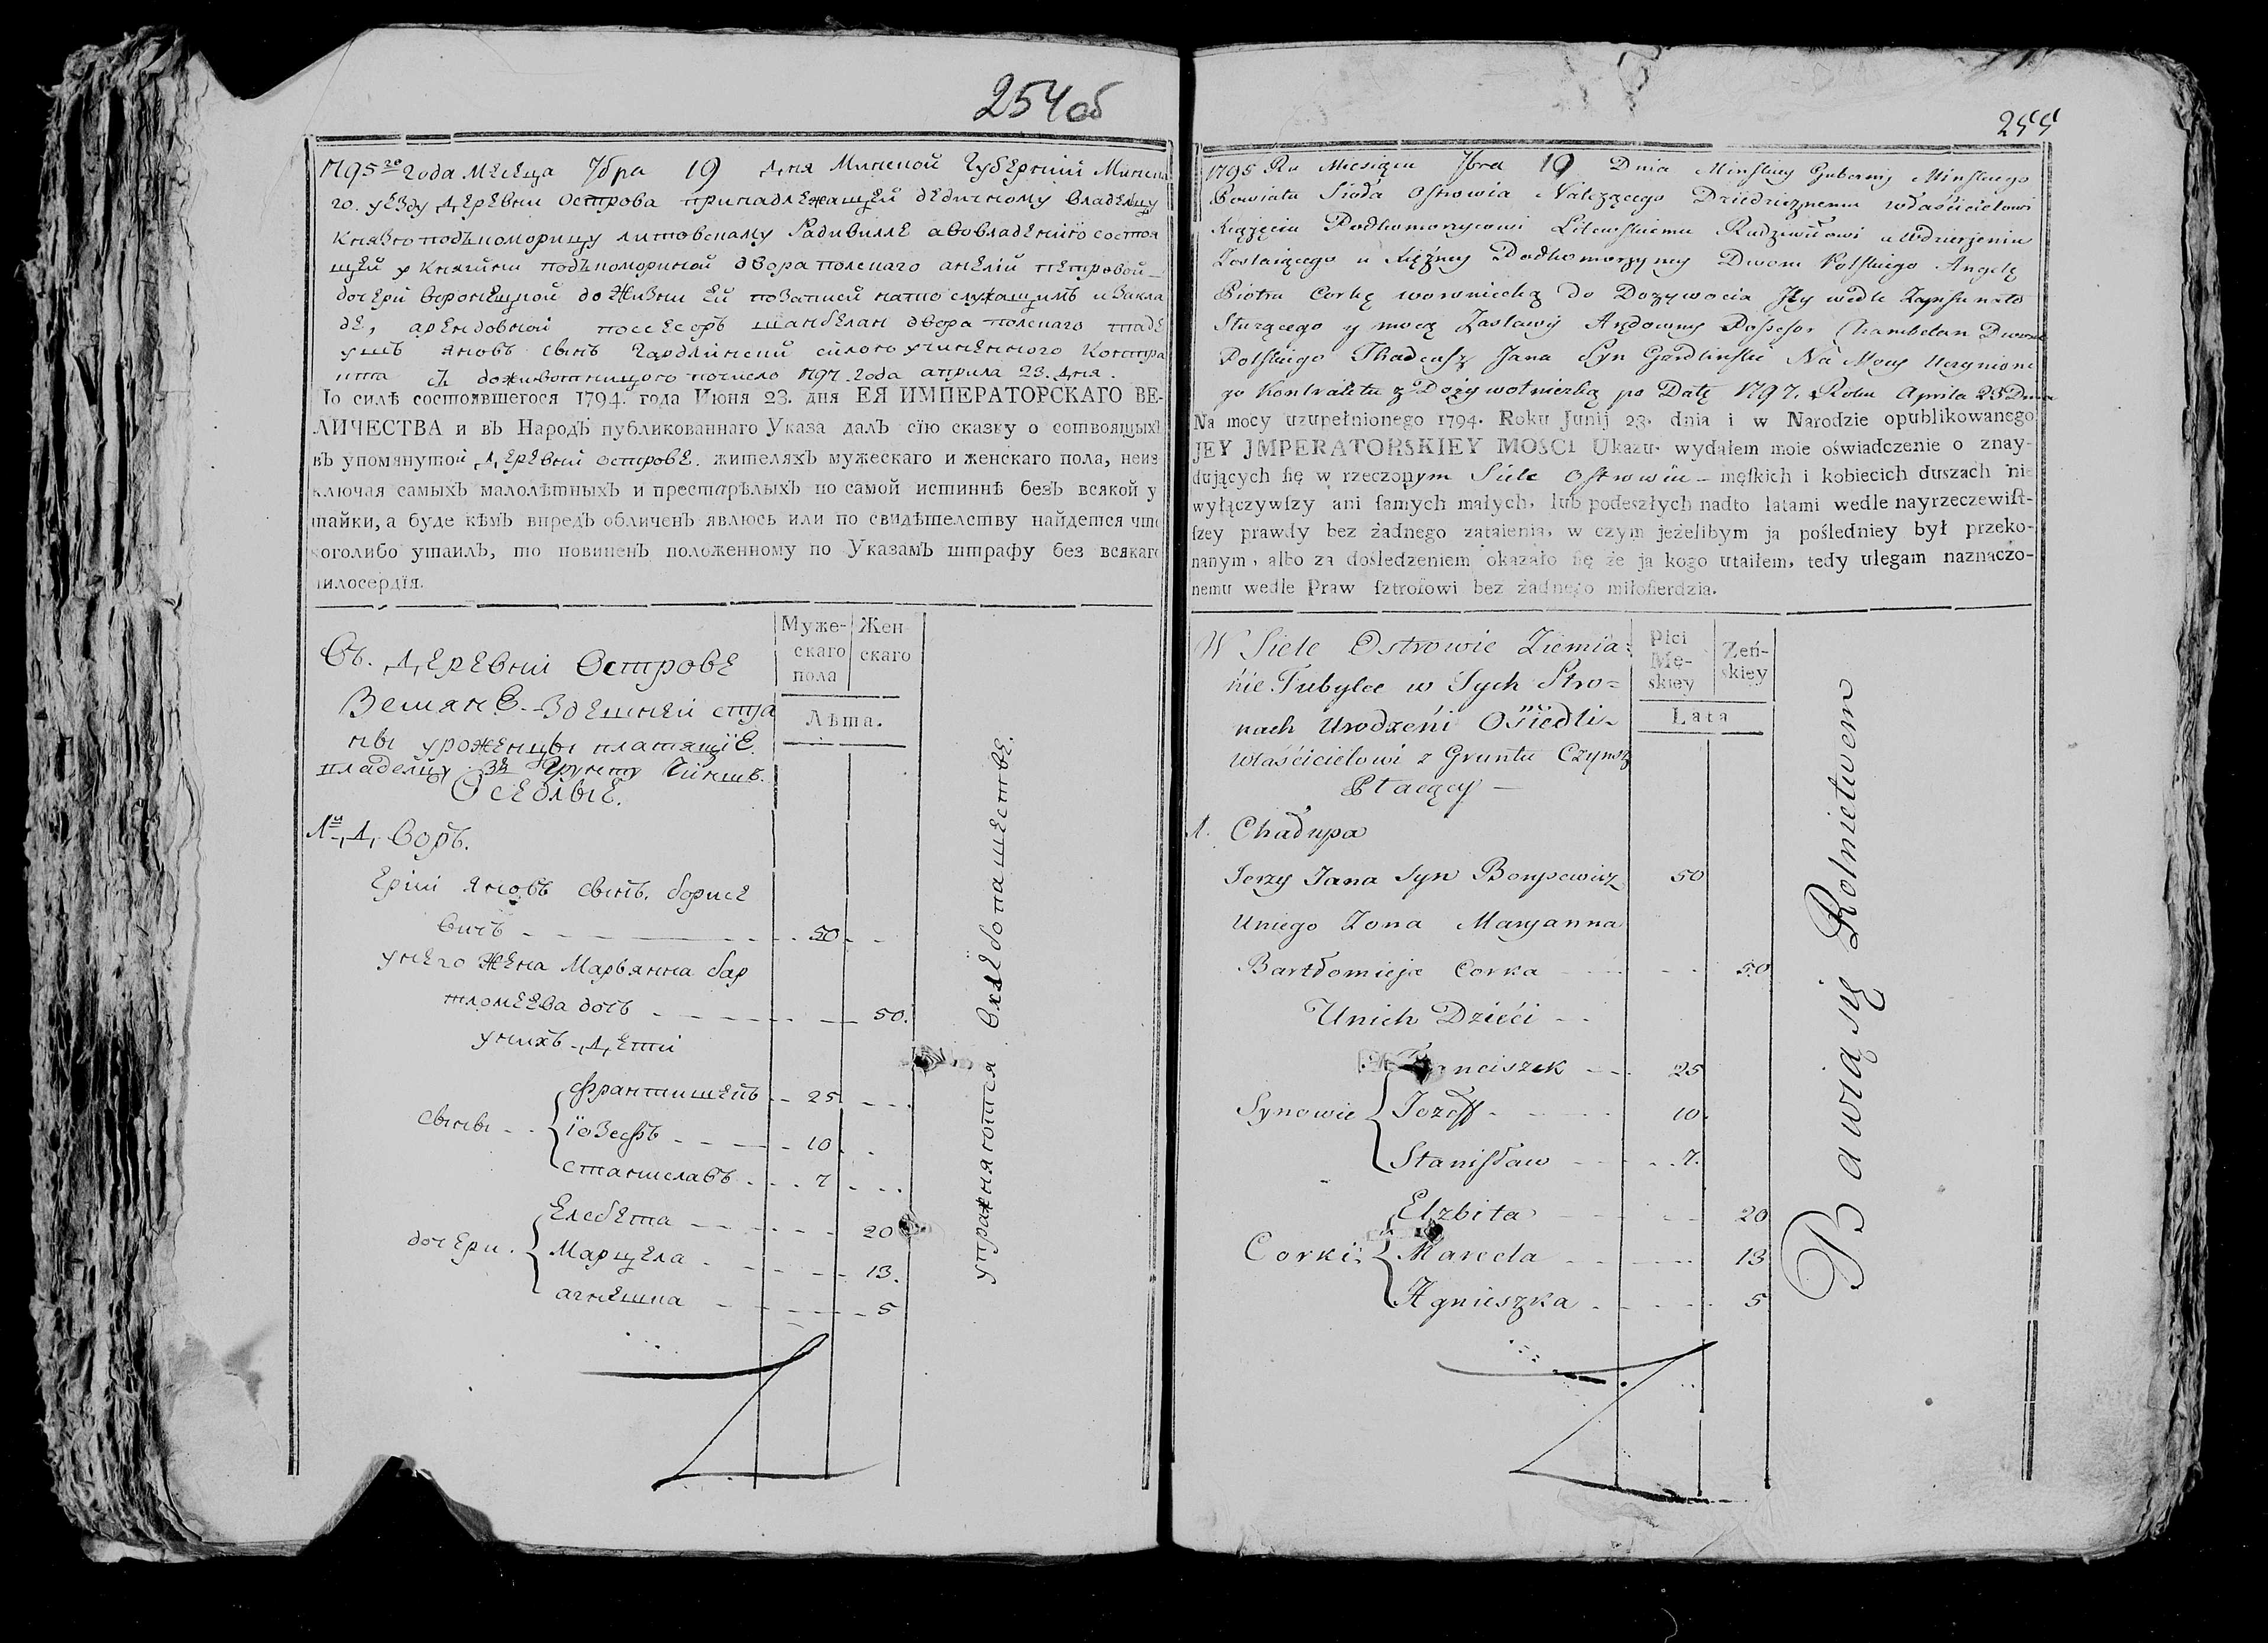 254об
1795го года месеца 7бра 19 дня Минской Губернии Минска
го уезду деревни Острова принадлежащей дедичному владелцу
Князю подъкоморицу литовскаму Радивилле а во владению состоя
щей у княгини подъкомориной двора полскаго анелiи петровой
дочери воронецкой до жизни ей по записи на то служащимъ и закла
де, арендовной поссесоръ шамбелан двора полскаго таде
ушъ яновъ сынъ Гардлинский силою учиненного контра
кта съ доживотницою по число 1797 года априла 23. дня.
По силѣ состоявшегося 1794. года Июня 23. дня ЕЯ ИМПЕРАТОРСКАГО ВЕ-
ЛИЧЕСТВА и въ Народѣ публикованнаго Указа далъ сїю сказку о сотвоящыхъ
въ упомянутой деревни острове жителяхъ мужескаго и женскаго пола, неиз
ключая самыхъ малолѣтныхъ и престарѣлыхъ по самой истиннѣ безъ всякой у
тайки, а буде кѣмъ впредъ обличенъ явлюсь или по свидѣтелству найдется что
коголибо утаилъ, то повиненъ положенному по Указамъ штрафу без всякаго
милосердїя.
Муже-
скаго
пола
Жен
скаго
Лѣта.
Въ деревни Острове
Земяне здешней сто
ны уроженцы платящїе
владелцу за грунту чиншъ.
Оседлые.
1й Дворъ.
Ерiи яновъ сынъ борисе
вичъ 50
у него жена Марьянна бар
тломеева дочъ 50.
у нихъ дети
сыны
франтишекъ 25
їозефъ 10
станиславъ 7
дочери
Елсбета 20
Марцела 13.
агнешка 5
упражняются в хлебопашестве.
255
1795 Ru Miesiąca 7bra 19 Dnia Minskiey Gubernij Minskiego
Powiatu Sioła Ostrowia Nalezącego Dziedzicznemu właścicielowi
Xiązęciu Podkomorzycowi Litewskiemu Radziwiłowi u wdzierżeniu
Zostaiącego u Xiężny Podkomorzyney Dworu Polskiego Angelę
Piotra Corkę woroniecką do Dozywocia Jey wedle Zapisu na to
Słuzącego y mocą Zastawy Arędowny Possesor Chambelan Dworu
Polskiego Thadeusz Jana Syn Gardlinski Na Mocy Uczynione
go Kontraktu z Dożywotniczką po Datę 1797. Roku Aprila 23 Dnia
Na mocy uzupełnionego 1794. Roku Junij 23. dnia i w Narodzie opublikowanego
JEY JMPERATORSKIEY MOSCI Ukazu. wydałem moie oświadczenie o znay-
dujących ſię w rzeczonym Siele Ostrowiu męſkich i kobiecich duszach nie
wyłączywſzy ani ſamych małych, lub podeszłych nadto latami wedle nayrzeczewiſt-
ſzey prawdy bez żadnego zataienia, w czym jeżelibym ja pośledniey był przeko-
nanym, albo za dośledzeniem okazało ſię że ja kogo utaiłem, tedy ulegam naznaczo-
nemu wedle Praw ſztrofowi bez żadnego miłoſierdzia.
Płci
Mę-
skiey
Żeń-
skiey
Lata
W Siele Ostrowie Ziemia:
nie Tubylce w Tych Stro=
nach Urodzeni Osiedli
właścicielowi z Gruntu Czynsz
Płacący —
1. Chałupa
Jerzy Jana Syn Borysewicz 50
Uniego Zona Maryanna
Bartłomieja Corka 50
Unich Dzieci
Synowie
Franciszek 25
Jozeff 10.
Stanisław 7.
Corki:
Elzbita 20
Marcela 13
Agnieszka 5
Bawią się Rolnictwem